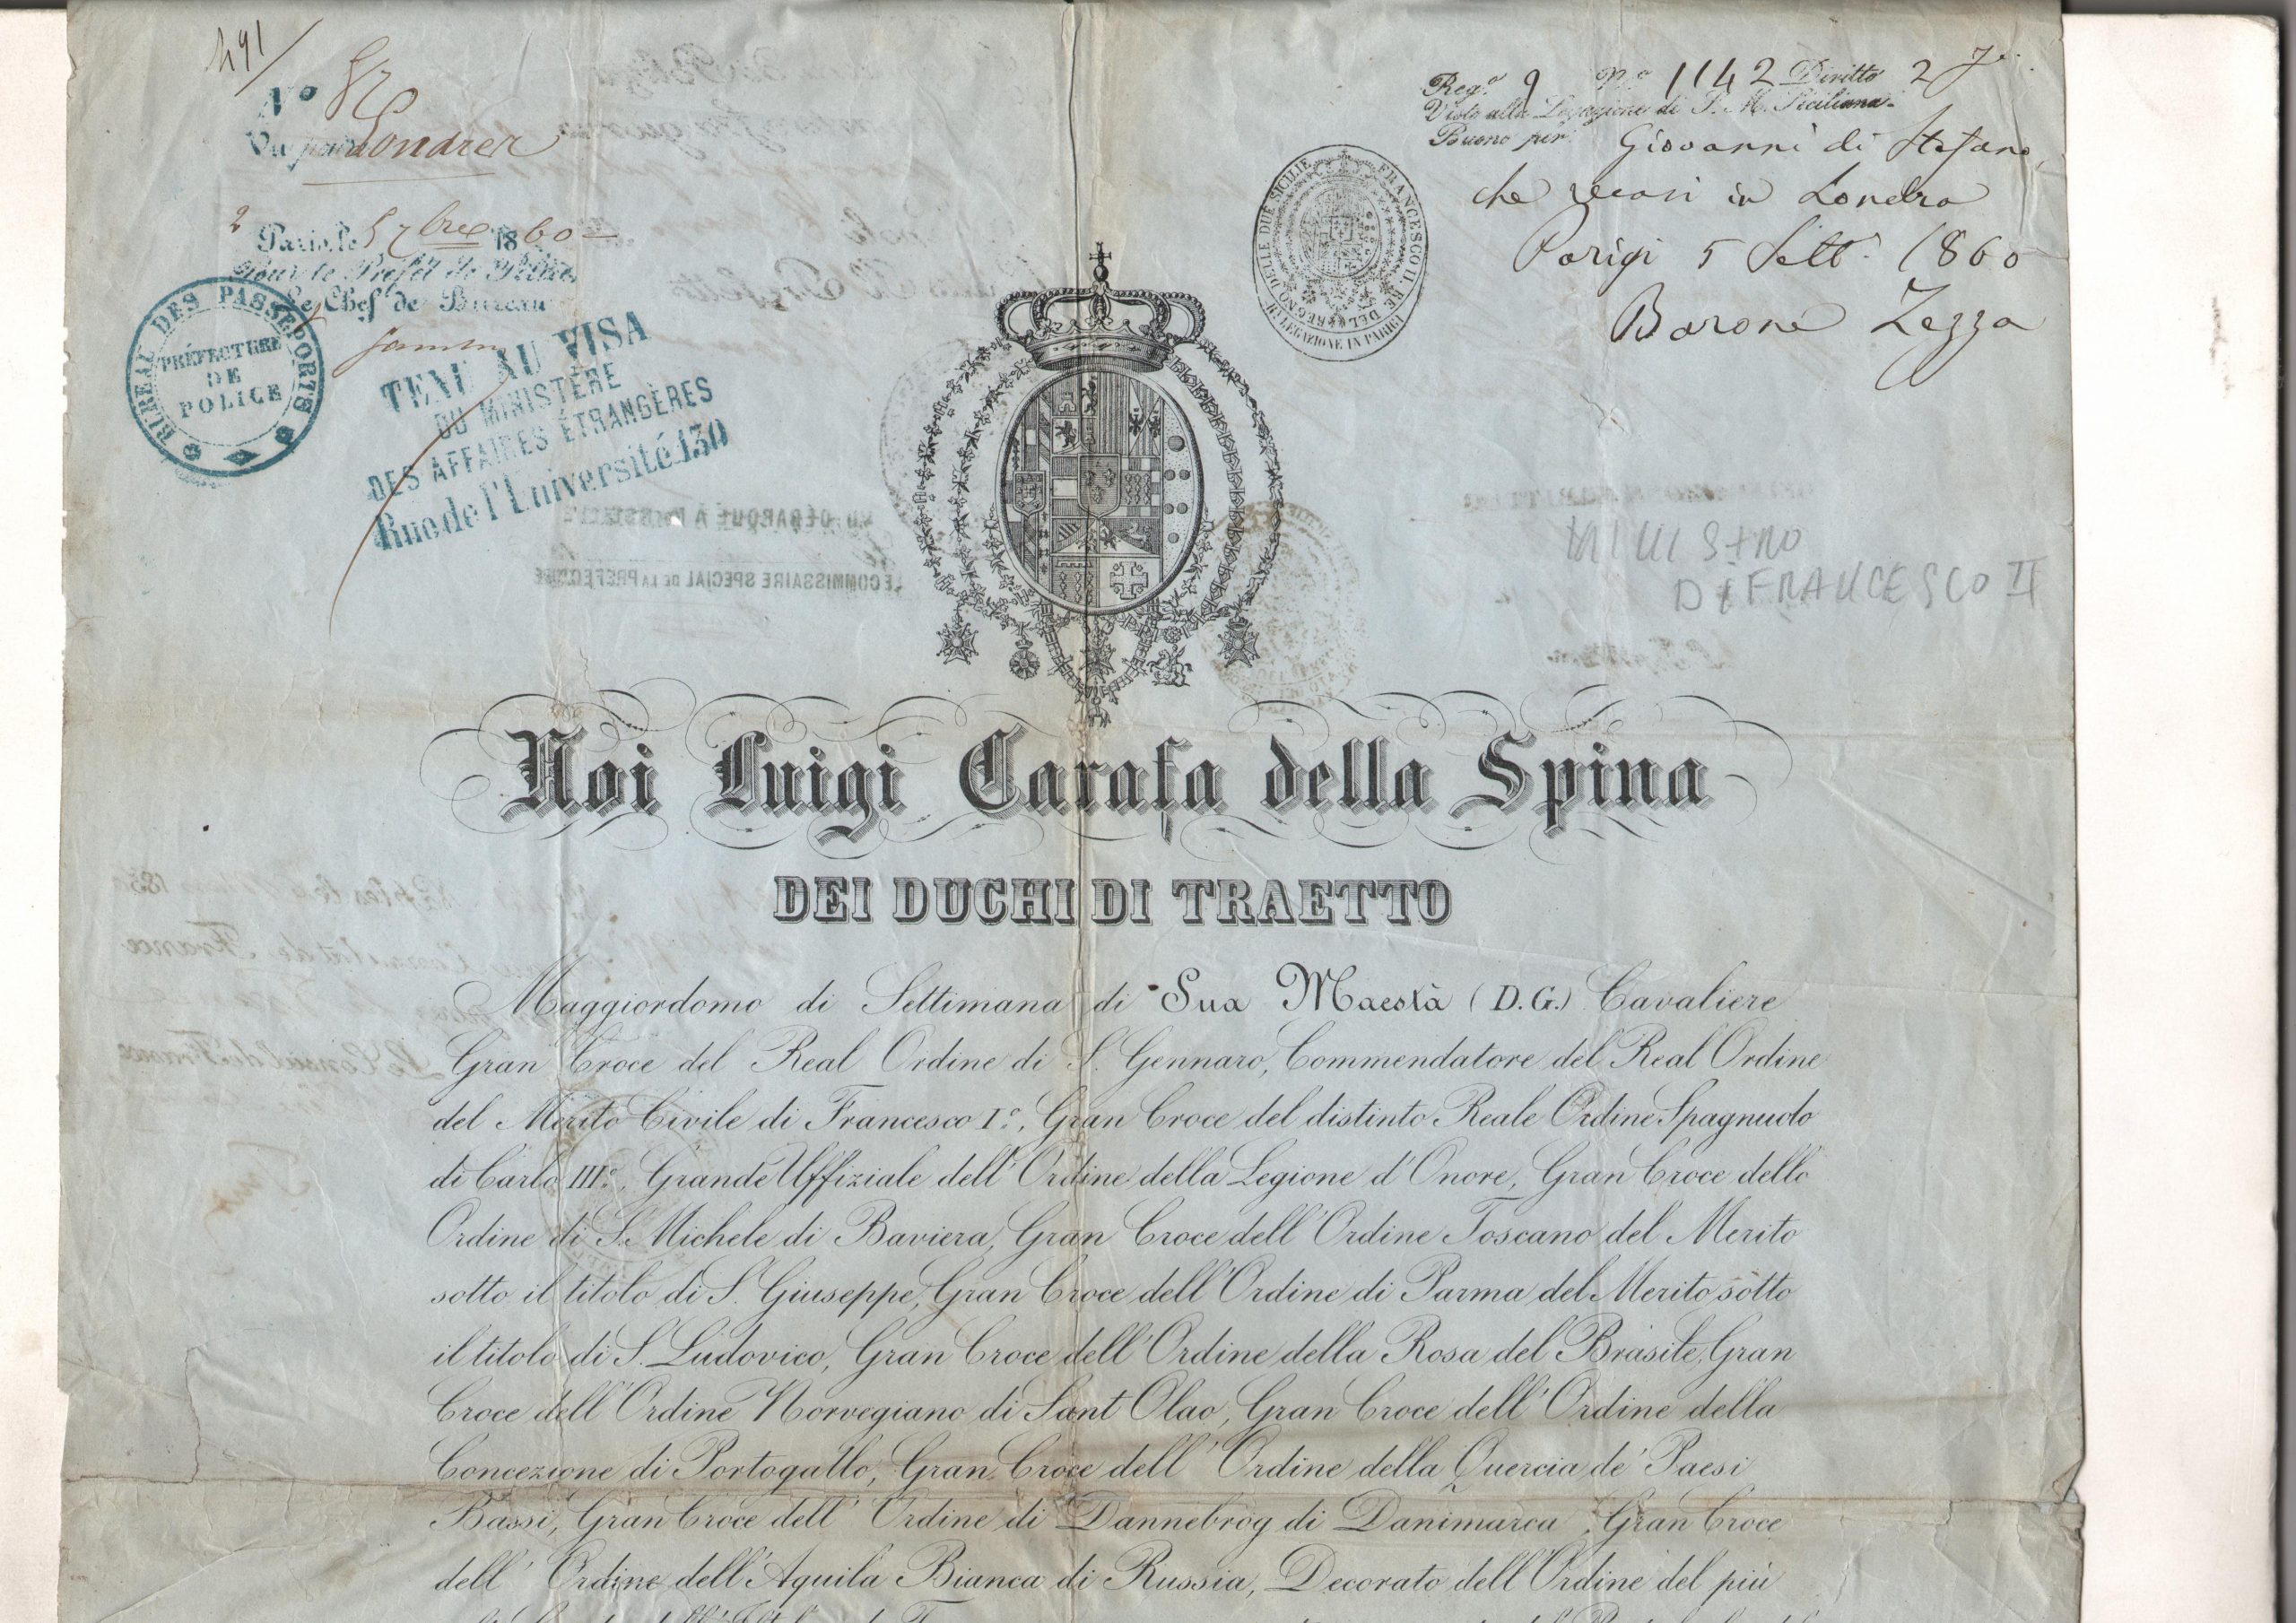 491
N° 820
Vu pour Londres
Paris, le 5 7bre 1860
Pour le Préfet de Police
Le Chef de Bureau
BUREAU DES PASSEPORTS
PRÉFECTURE
DE
POLICE
TENU AU VISA
DU MINISTÈRE
DES AFFAIRES ÉTRANGÈRES
Rue de l'Université 130
Reg.° 9 N.° 1142 Diritto 2
Visto alla Legazione di S. M. Siciliana.
Buono per Giovanni di Stefano
che recasi in Londra
Parigi 5 Sett. 1860
Barone Zezza
FRANCESCO II. RE DEL REGNO DELLE DUE SICILIE
LEGAZIONE IN PARIGI
MINISTRO
DI FRANCESCO II
DÉBARQUÉ A MARSEILLE
LE COMMISSAIRE SPECIAL DE LA PREFECTURE
Noi Luigi Carafa della Spina
DEI DUCHI DI TRAETTO
Maggiordomo di Settimana di Sua Maestà (D.G.) Cavaliere
Gran Croce del Real Ordine di S. Gennaro, Commendatore del Real Ordine
del Merito Civile di Francesco I.°, Gran Croce del distinto Reale Ordine Spagnuolo
di Carlo III.°, Grande Uffiziale dell' Ordine della Legione d'Onore, Gran Croce dello
Ordine di S. Michele di Baviera, Gran Croce dell' Ordine Toscano del Merito
sotto il titolo di S. Giuseppe, Gran Croce dell' Ordine di Parma del Merito sotto
il titolo di S. Ludovico, Gran Croce dell' Ordine della Rosa del Brasile, Gran
Croce dell' Ordine Norvegiano di Sant Olao, Gran Croce dell' Ordine della
Concezione di Portogallo, Gran Croce dell' Ordine della Quercia de' Paesi
Bassi, Gran Croce dell' Ordine di Dannebrog di Danimarca, Gran Croce
dell' Ordine dell'Aquila Bianca di Russia, Decorato dell'Ordine del più